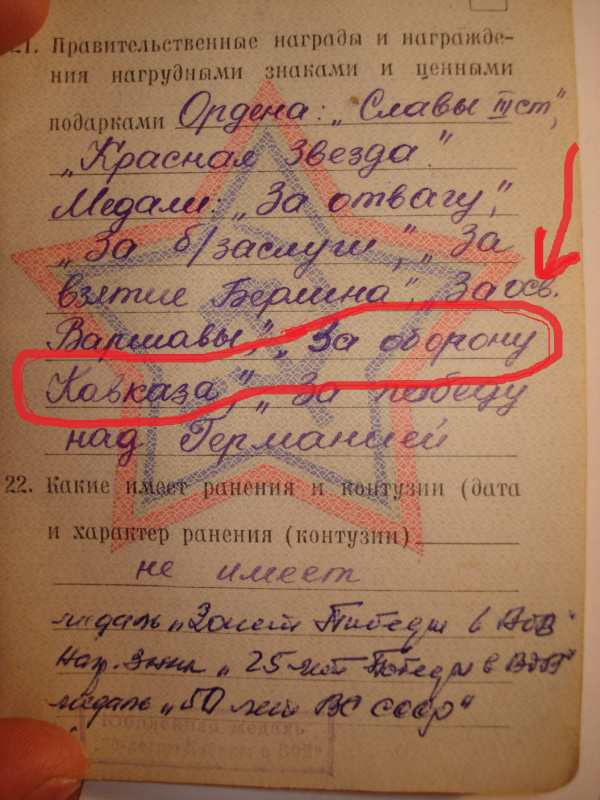 21. Правительственные награды и награжде-
ния нагрудными знаками и ценными
подарками Ордена: „Славы III ст",
„Красная Звезда".
Медали: „За отвагу",
„За б/заслуги", „За
взятие Берлина", „За осв.
Варшавы", „За оборону
Кавказа", „За победу
над Германией
22. Какие имеет ранения и контузии (дата
и характер ранения (контузии)
не имеет
медаль „20 лет Победы в ВОВ"
Наг. знак „25 лет Победы в ВОВ"
медаль „50 лет ВС СССР"
Юбилейная медаль